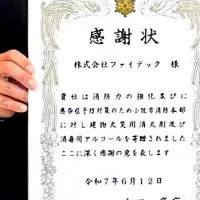 感謝状
株式会社ファイテック 様
貴社は消防力の強化並びに
感染症予防対策のため小牧市消防本部
に対し建物火災用消火剤及び
消毒用アルコールを寄贈されました
ここに深く感謝の意を表します
令和7年6月12日